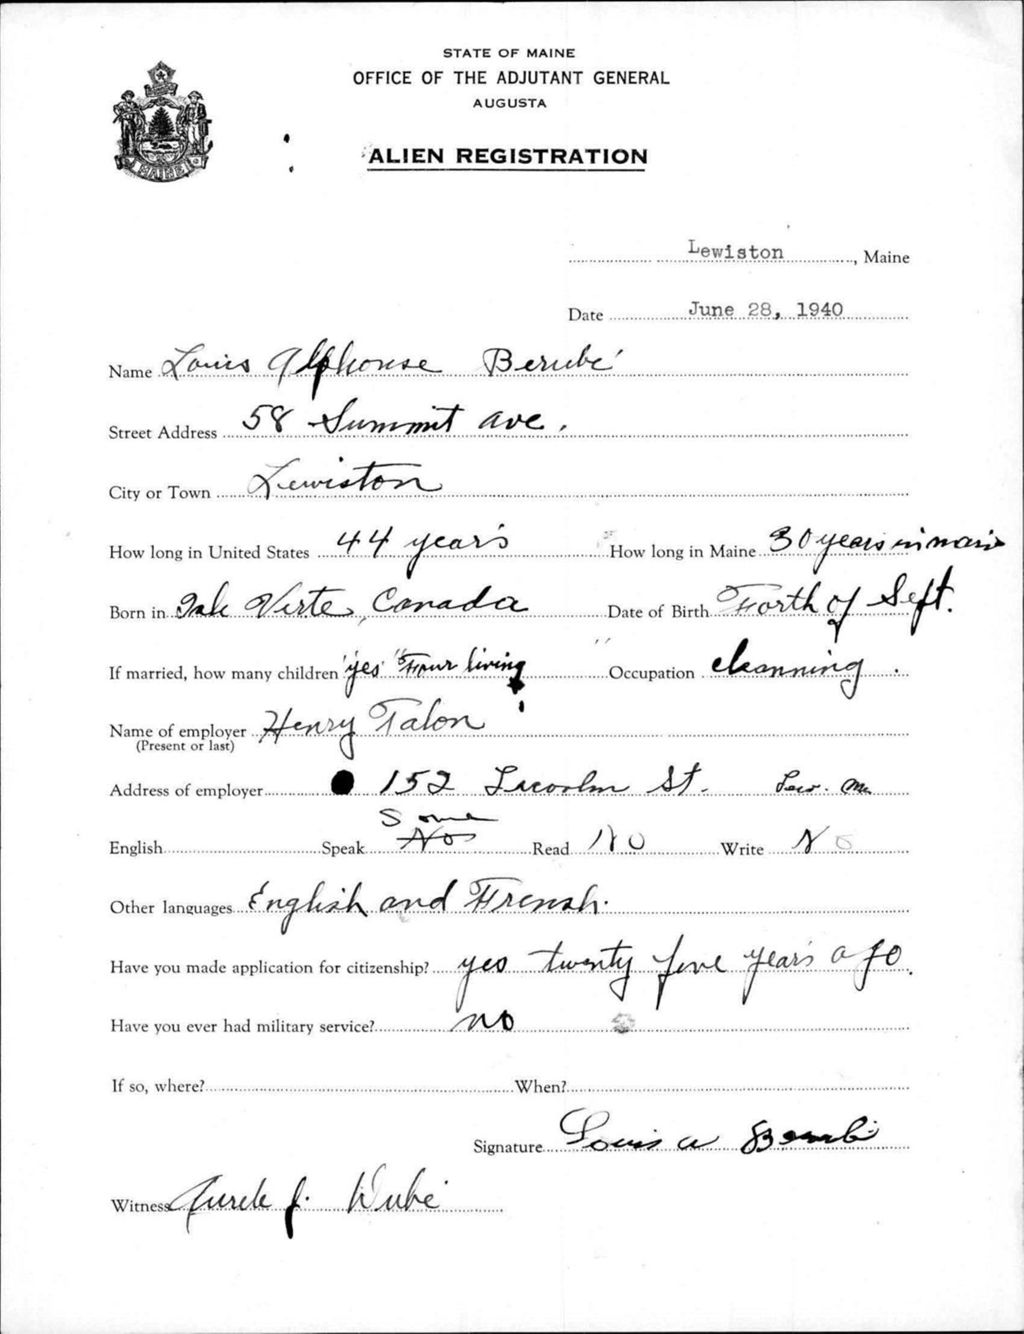 STATE OF MAINE
OFFICE OF THE ADJUTANT GENERAL
AUGUSTA
ALIEN REGISTRATION
MAINE
Lewiston, Maine
Date June 28, 1940
Name Louis Alphonse Berubé
Street Address 58 Summit ave.
City or Town Lewiston
How long in United States 44 years How long in Maine 30 years in
Born in Isle Verte, Canada Date of Birth Forth of Sept.
If married, how many children yes "Four living" Occupation cleanning.
Name of employer Henry Talon
(Present or last)
Address of employer 152 Lincoln St. Lew. Me
Some
English Speak No Read No Write No
Other languages English and French.
Have you made application for citizenship? yes twenty five years ago.
Have you ever had military service? no
If so, where? When?
Signature Louis A Berubé
Witness Aurele J. Dubé